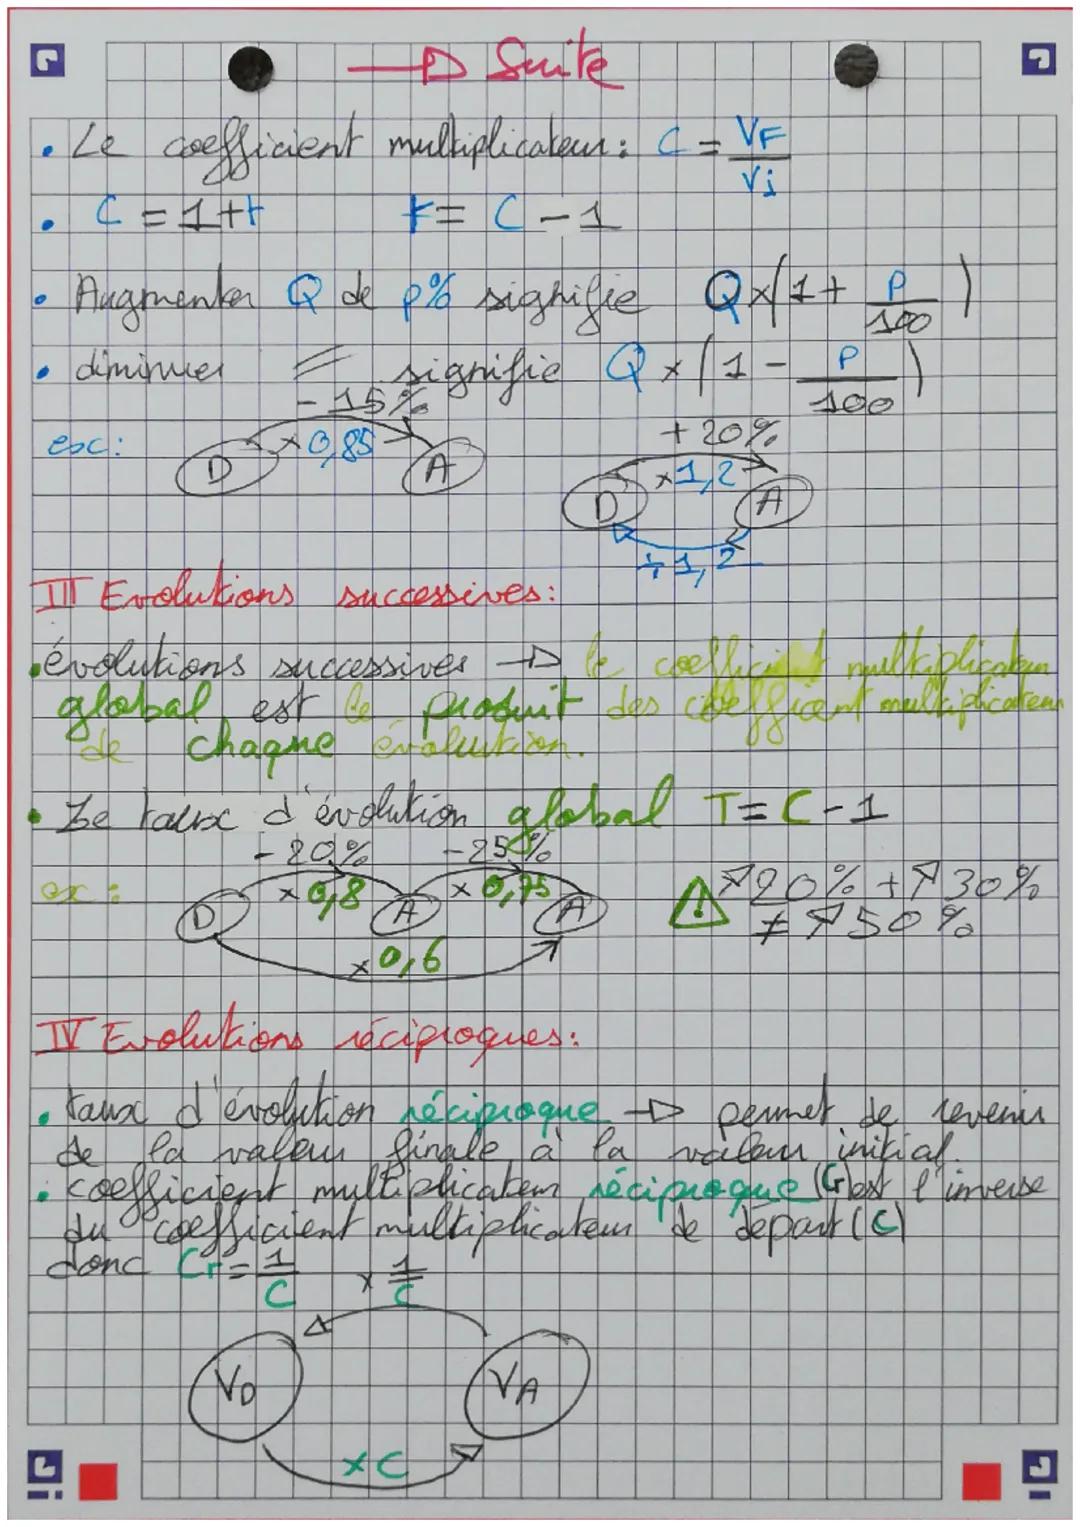 → Suite
• Le coefficient multiplicateur : C = VF/Vi
• C = 1+t t = C - 1
• Augmenter Q de p% signifie Q×(1 + P/100)
• diminuer = signifie Q × (1 - P/100)
- 15%
ex: D × 0,85 A
+ 20%
D × 1,2 A
÷ 1,2
III Evolutions successives:
• évolutions successives → le coefficient multiplicateur
global est le produit des coefficient multiplicateur
de chaque évolution.
• Le taux d'évolution global T = C - 1
- 20% - 25%
ex : D × 0,8 A × 0,75 A
× 0,6
⚠ ↗20% + ↗30%
≠ ↗50%
IV Evolutions réciproques:
• taux d'évolution réciproque → permet de revenir
de la valeur finale à la valeur initial.
• coefficient multiplicateur réciproque (Cr) est l'inverse
du coefficient multiplicateur de départ (C)
donc Cr = 1/C
× 1/C
VD VA
× C